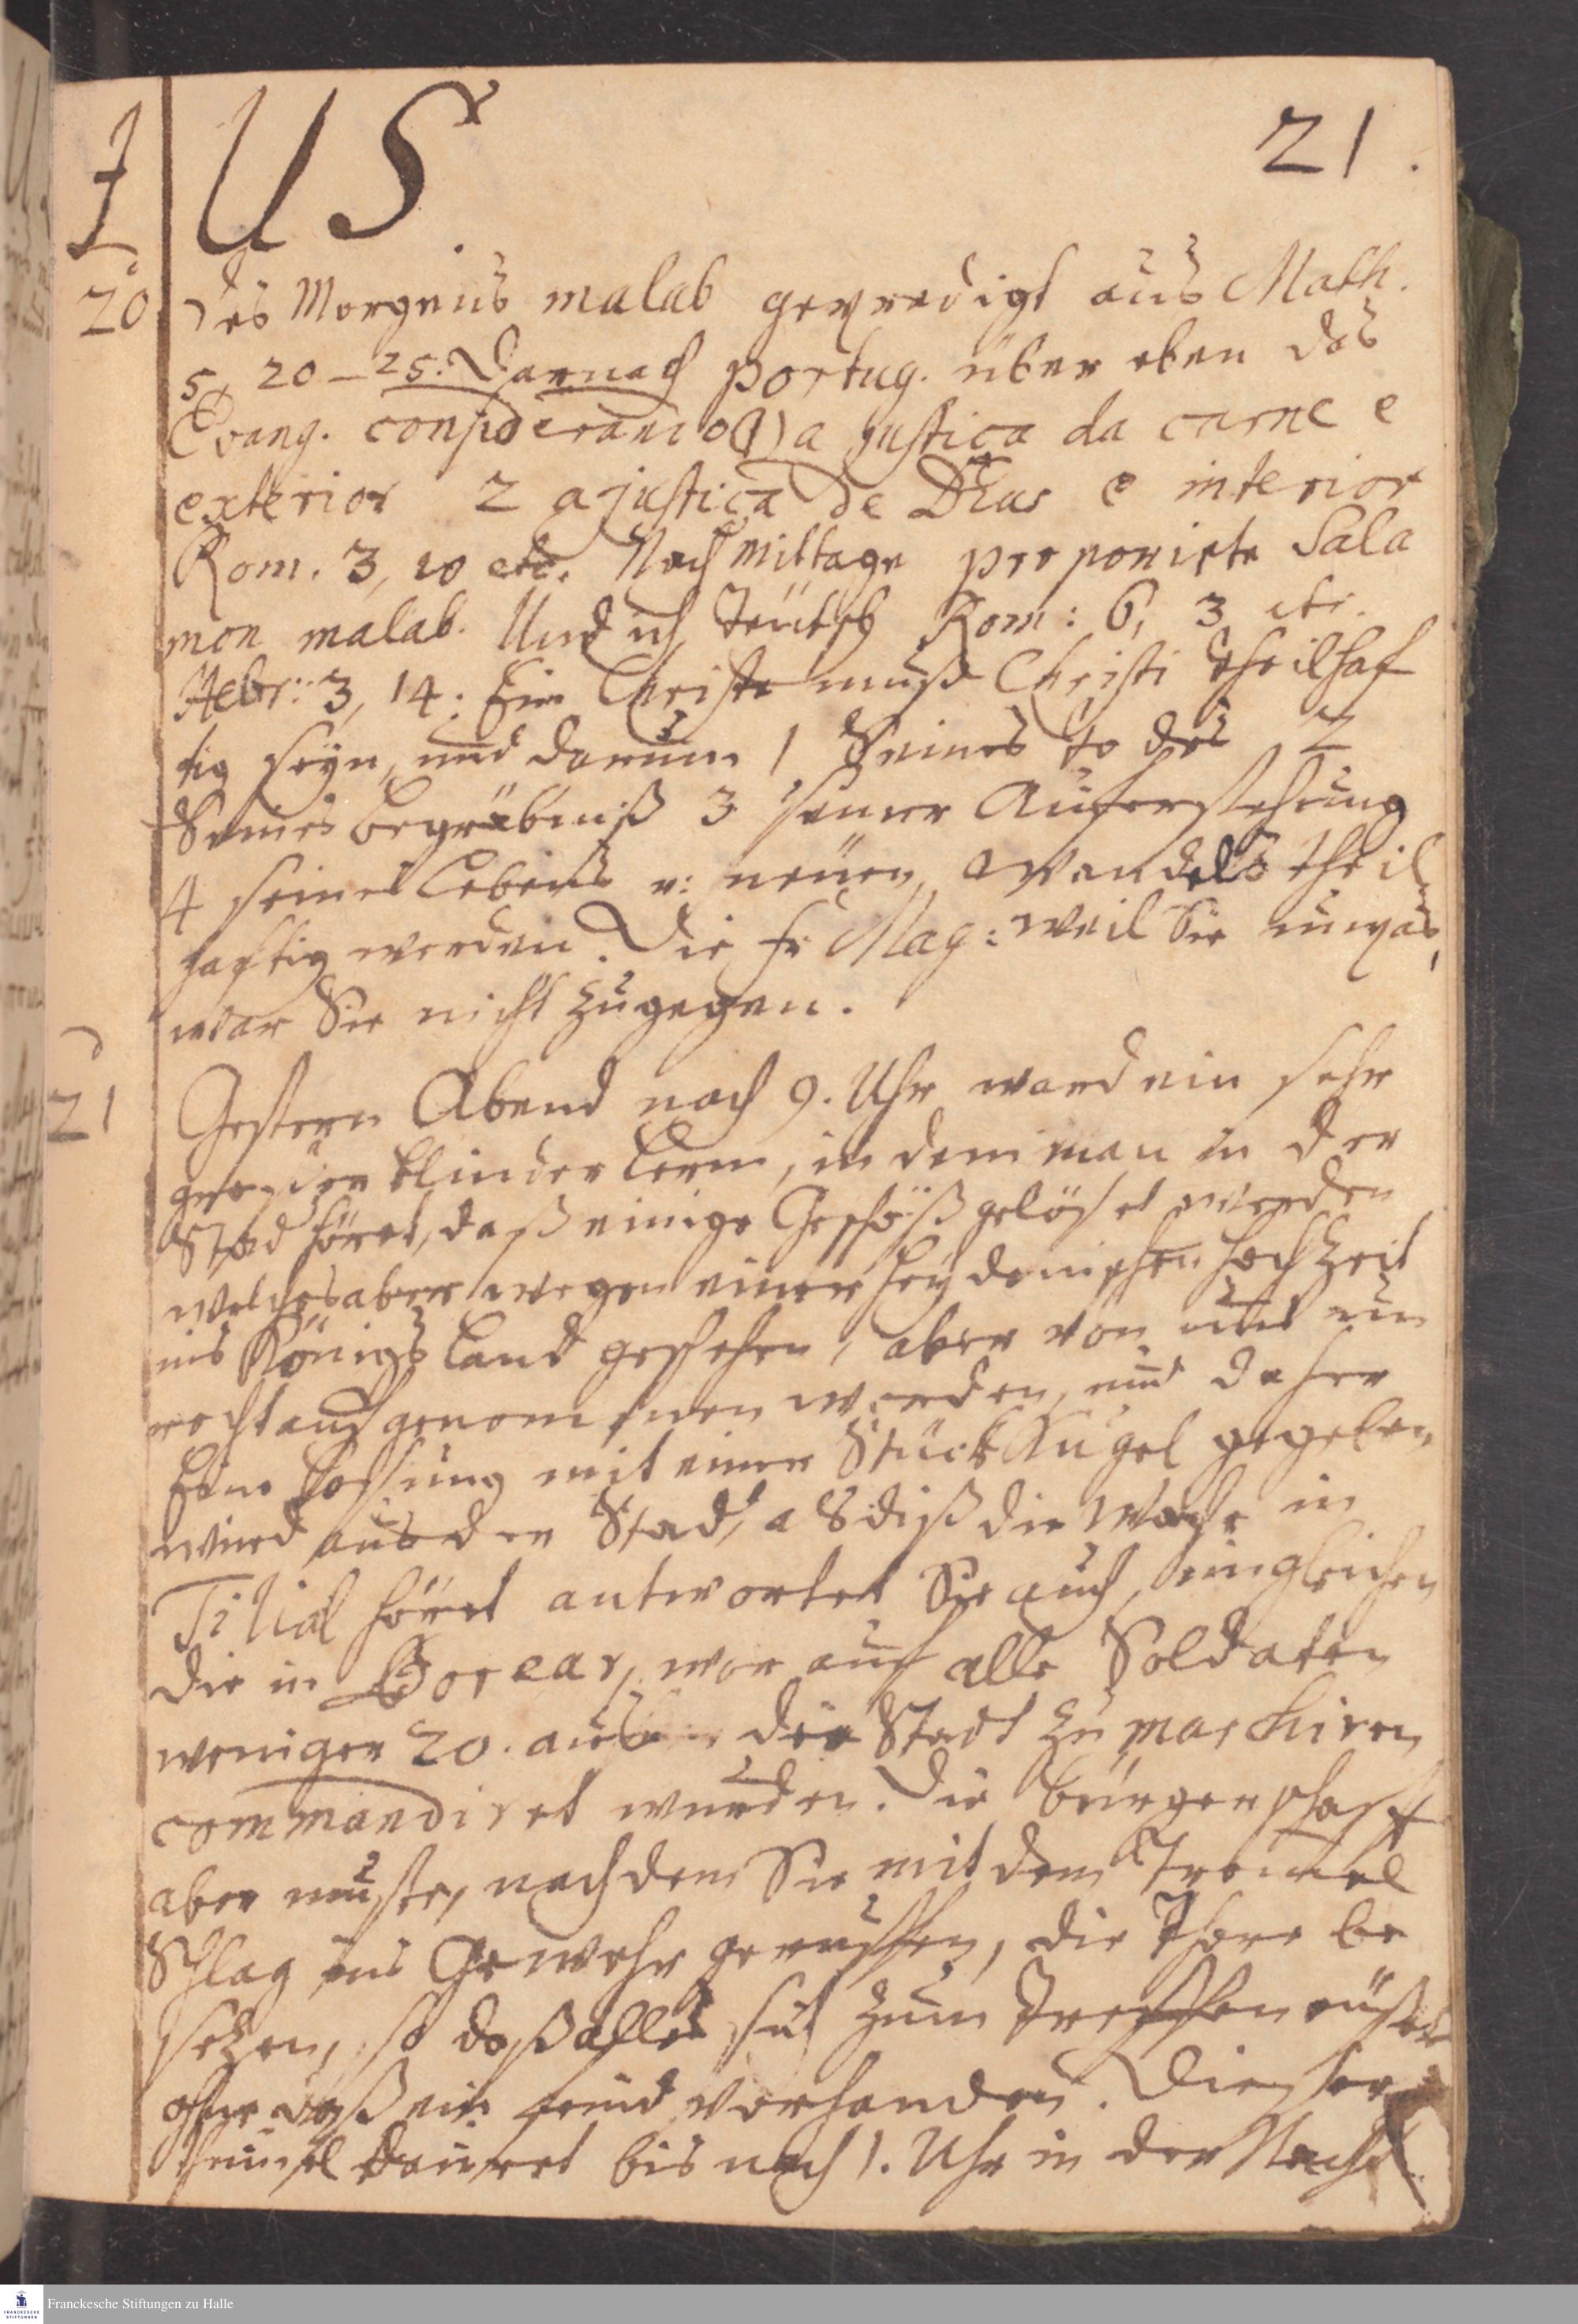 J US 21.
20 Des Morgens malab gepredigt aus Math.
5, 20 – 25. Darnach portug. über eben das
Evang. considerando 1) a justiça da carne e
exterior 2 a justiça de DEus e interior
Rom. 3, 10 etc. Nach Mittage proponirte Sala
mon malab. Und ich Teütsch Rom: 6, 3 etc.
Hebr: 3, 14. Ein Christe muß Christi theilhaf
tig seyn, und darum 1 Seines todes 2
Seines begräbniß 3 seiner Auferstehung
4 seines Lebens u: neuen Wandels theil
haftig werden. Die Fr Mag: weil Sie unpas,
war Sie nicht zugegen.
21 Gestern Abend nach 9. Uhr ward ein sehr
großer blinder Lerm, in dem man in der
Stad höret, daß einige Geschöß gelöset werden
welches aber wegen einer heydenischen hochzeit
ins Königs Land geschehen, aber von uns un
recht auffgenommen worden, und daher
Eine Loßung mit einer Stück Kugel gegeben
wird aus der Stad, als diß die Wache in
Tilial höret antwortet Sie auch, imgleichen
die in Porear, wor auf alle Soldaten
weniger 20. aus der Stadt zu marchiren
commandiret wurden. Die bürgerschafft
aber muste, nachdem Sie mit dem Tromel
Schlag ins Gewehr geruffen, die Thore be
setzen, so daß alles sich zum Treffen rüstet
ohne daß ein feind vorhanden. Dieser
tumul dauret bis nach 1. Uhr in der Nacht
Franckesche Stiftungen zu Halle